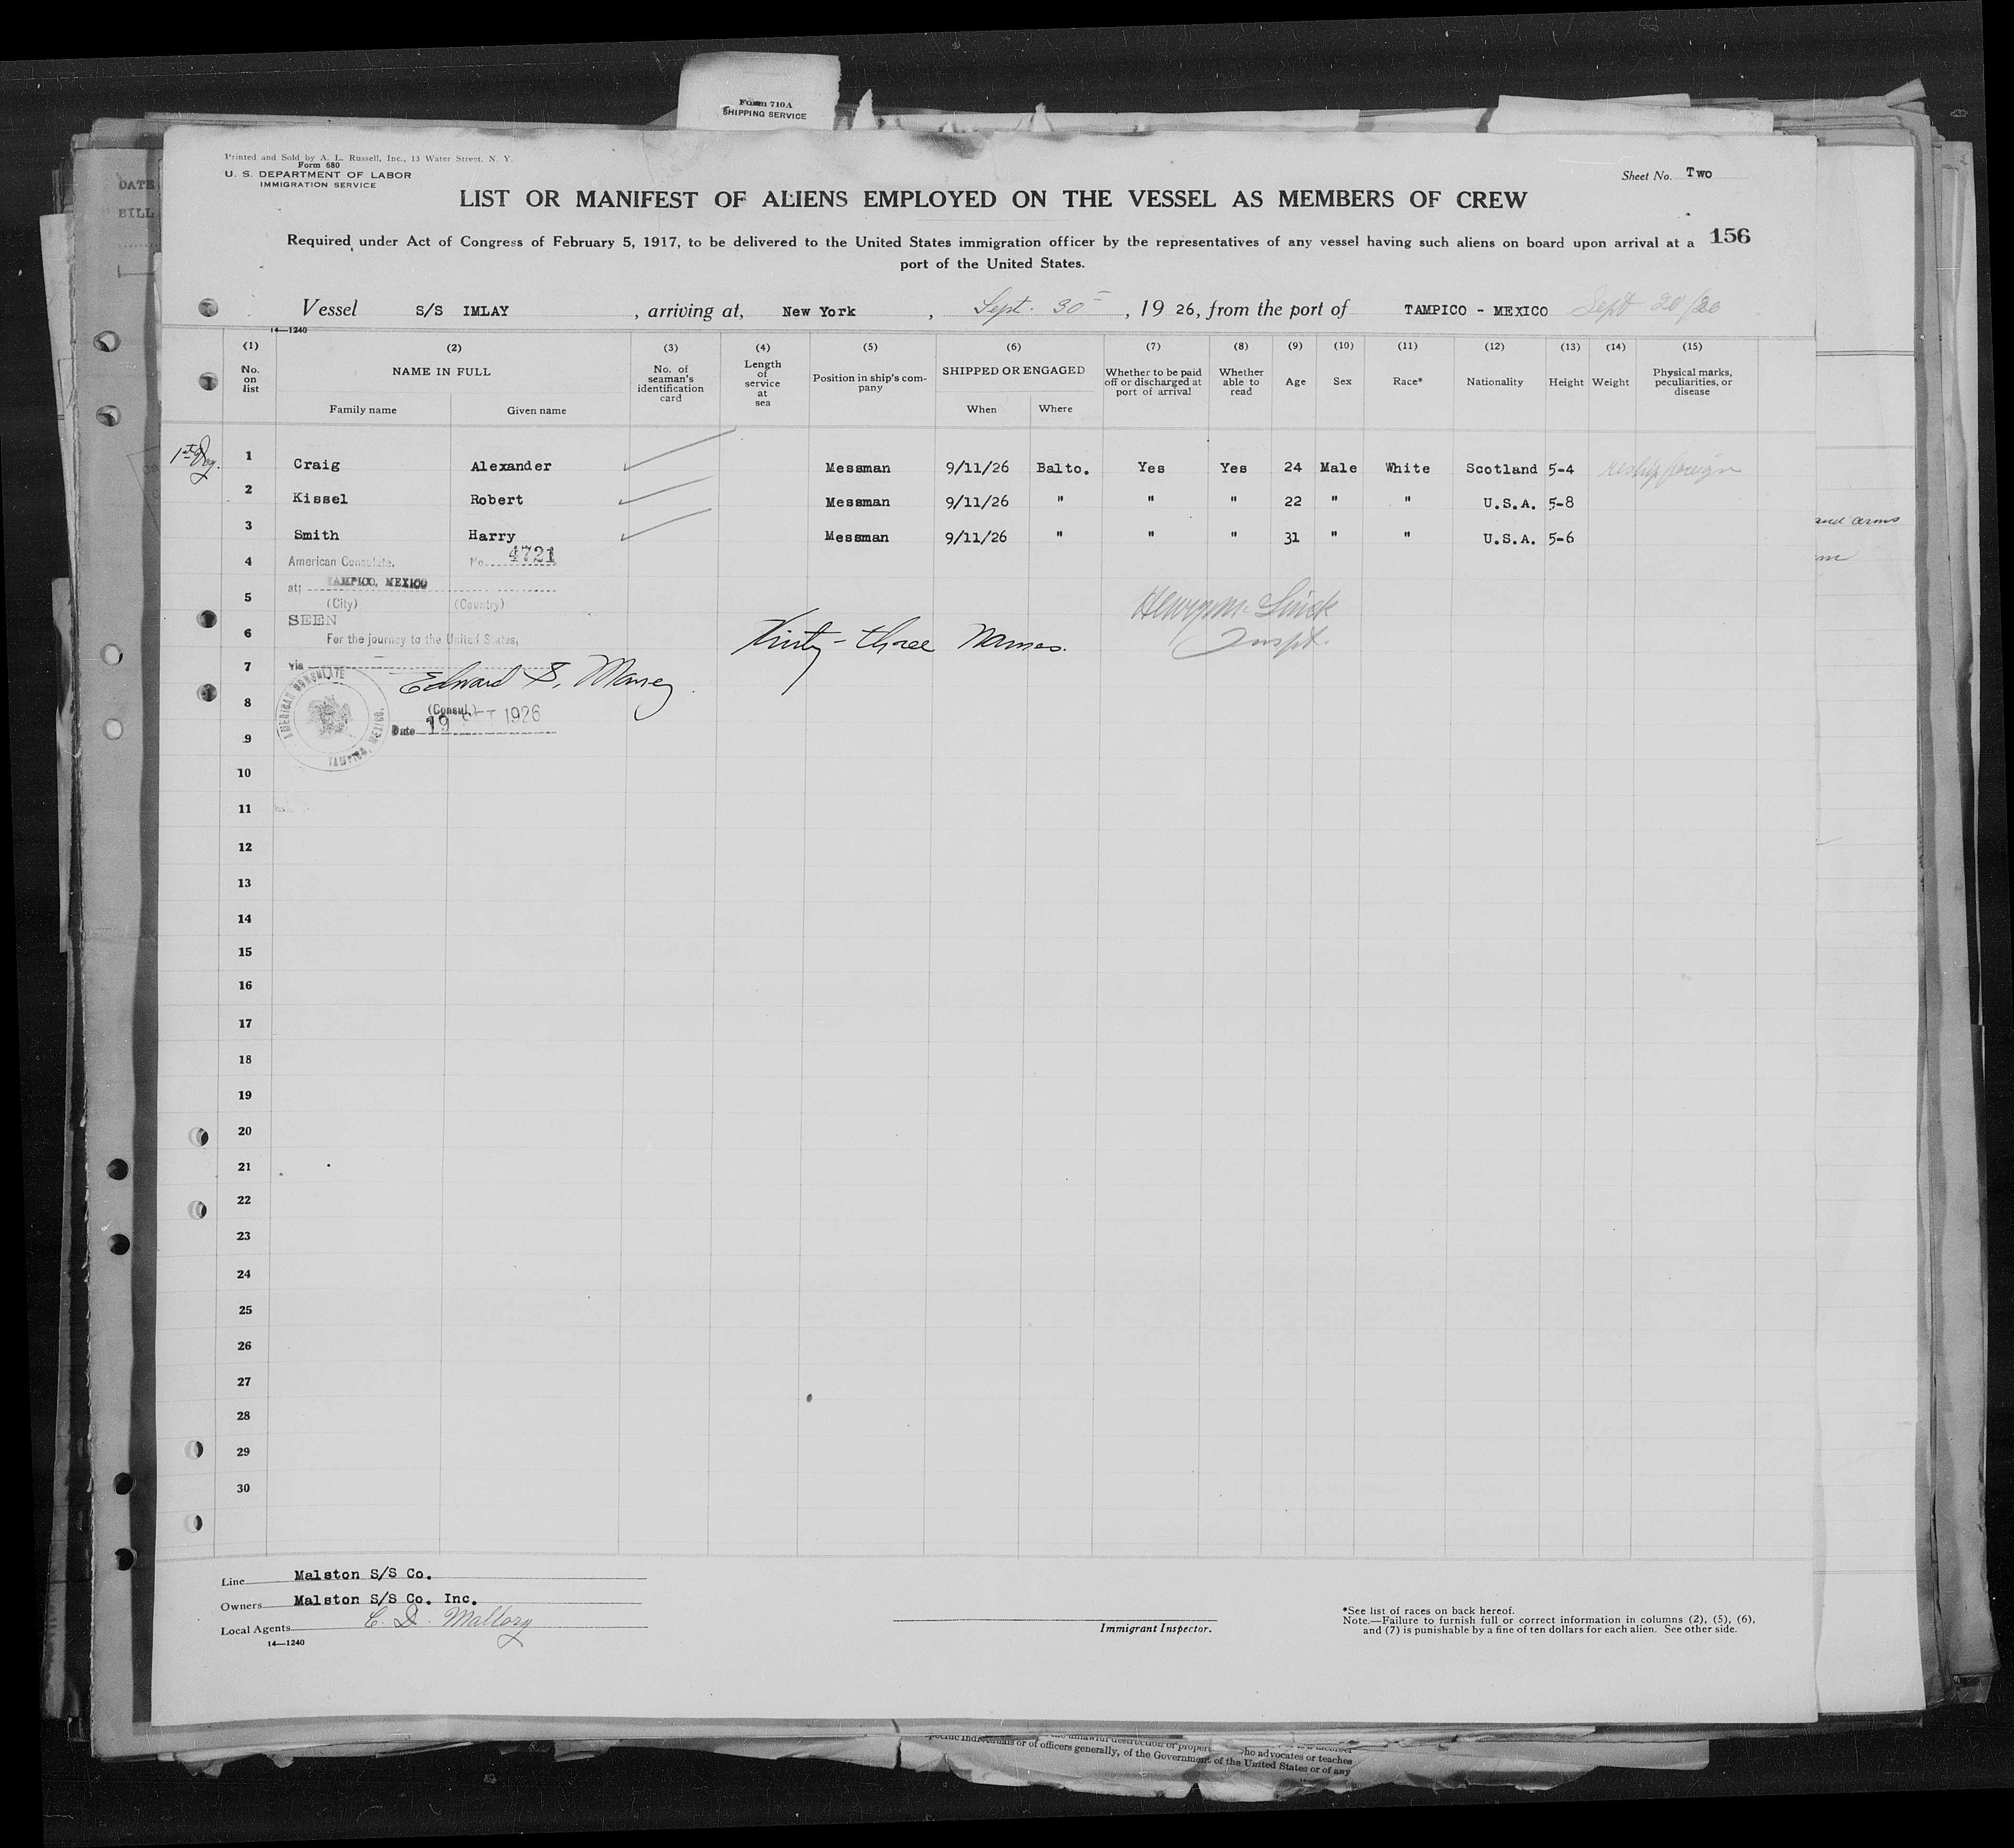 Form 710A
SHIPPING SERVICE
DATE
BILL
Printed and Sold by A. L. Russell, Inc., 13 Water Street, N. Y.
Form 680
U. S. DEPARTMENT OF LABOR
IMMIGRATION SERVICE
Sheet No. Two
LIST OR MANIFEST OF ALIENS EMPLOYED ON THE VESSEL AS MEMBERS OF CREW
156
Required under Act of Congress of February 5, 1917, to be delivered to the United States immigration officer by the representatives of any vessel having such aliens on board upon arrival at a
port of the United States.
Vessel S/S IMLAY, arriving at, New York, Sept. 30, 19 26, from the port of TAMPICO - MEXICO Sept 20/26
14—1240
(1) (2) (3) (4) (5) (6) (7) (8) (9) (10) (11) (12) (13) (14) (15)
No. on list
NAME IN FULL
Family name Given name
No. of seaman's identification card
Length of service at sea
Position in ship's company
SHIPPED OR ENGAGED
When Where
Whether to be paid off or discharged at port of arrival
Whether able to read
Age
Sex
Race*
Nationality
Height
Weight
Physical marks, peculiarities, or disease
1 Craig Alexander Messman 9/11/26 Balto. Yes Yes 24 Male White Scotland 5-4 reship foreign
2 Kissel Robert Messman 9/11/26 " " " 22 " " U.S.A. 5-8
3 Smith Harry Messman 9/11/26 " " " 31 " " U.S.A. 5-6
and arms
4 American Consulate, No. 4721
at; TAMPICO, MEXICO
5 (City) (Country)
SEEN
6 For the journey to the United States,
Thirty-three Names.
Inspt.
7 via
Edward S.
8 (Consul)
Date 19 1926
AMERICAN CONSULATE
TAMPICO, MEXICO.
9
10
11
12
13
14
15
16
17
18
19
20
21
22
23
24
25
26
27
28
29
30
Line Malston S/S Co.
Owners Malston S/S Co. Inc.
Local Agents C. D. Mallory
14—1240
Immigrant Inspector.
*See list of races on back hereof.
Note.—Failure to furnish full or correct information in columns (2), (5), (6),
and (7) is punishable by a fine of ten dollars for each alien. See other side.
who advocates or teaches
or of officers generally, of the Government of the United States or of any